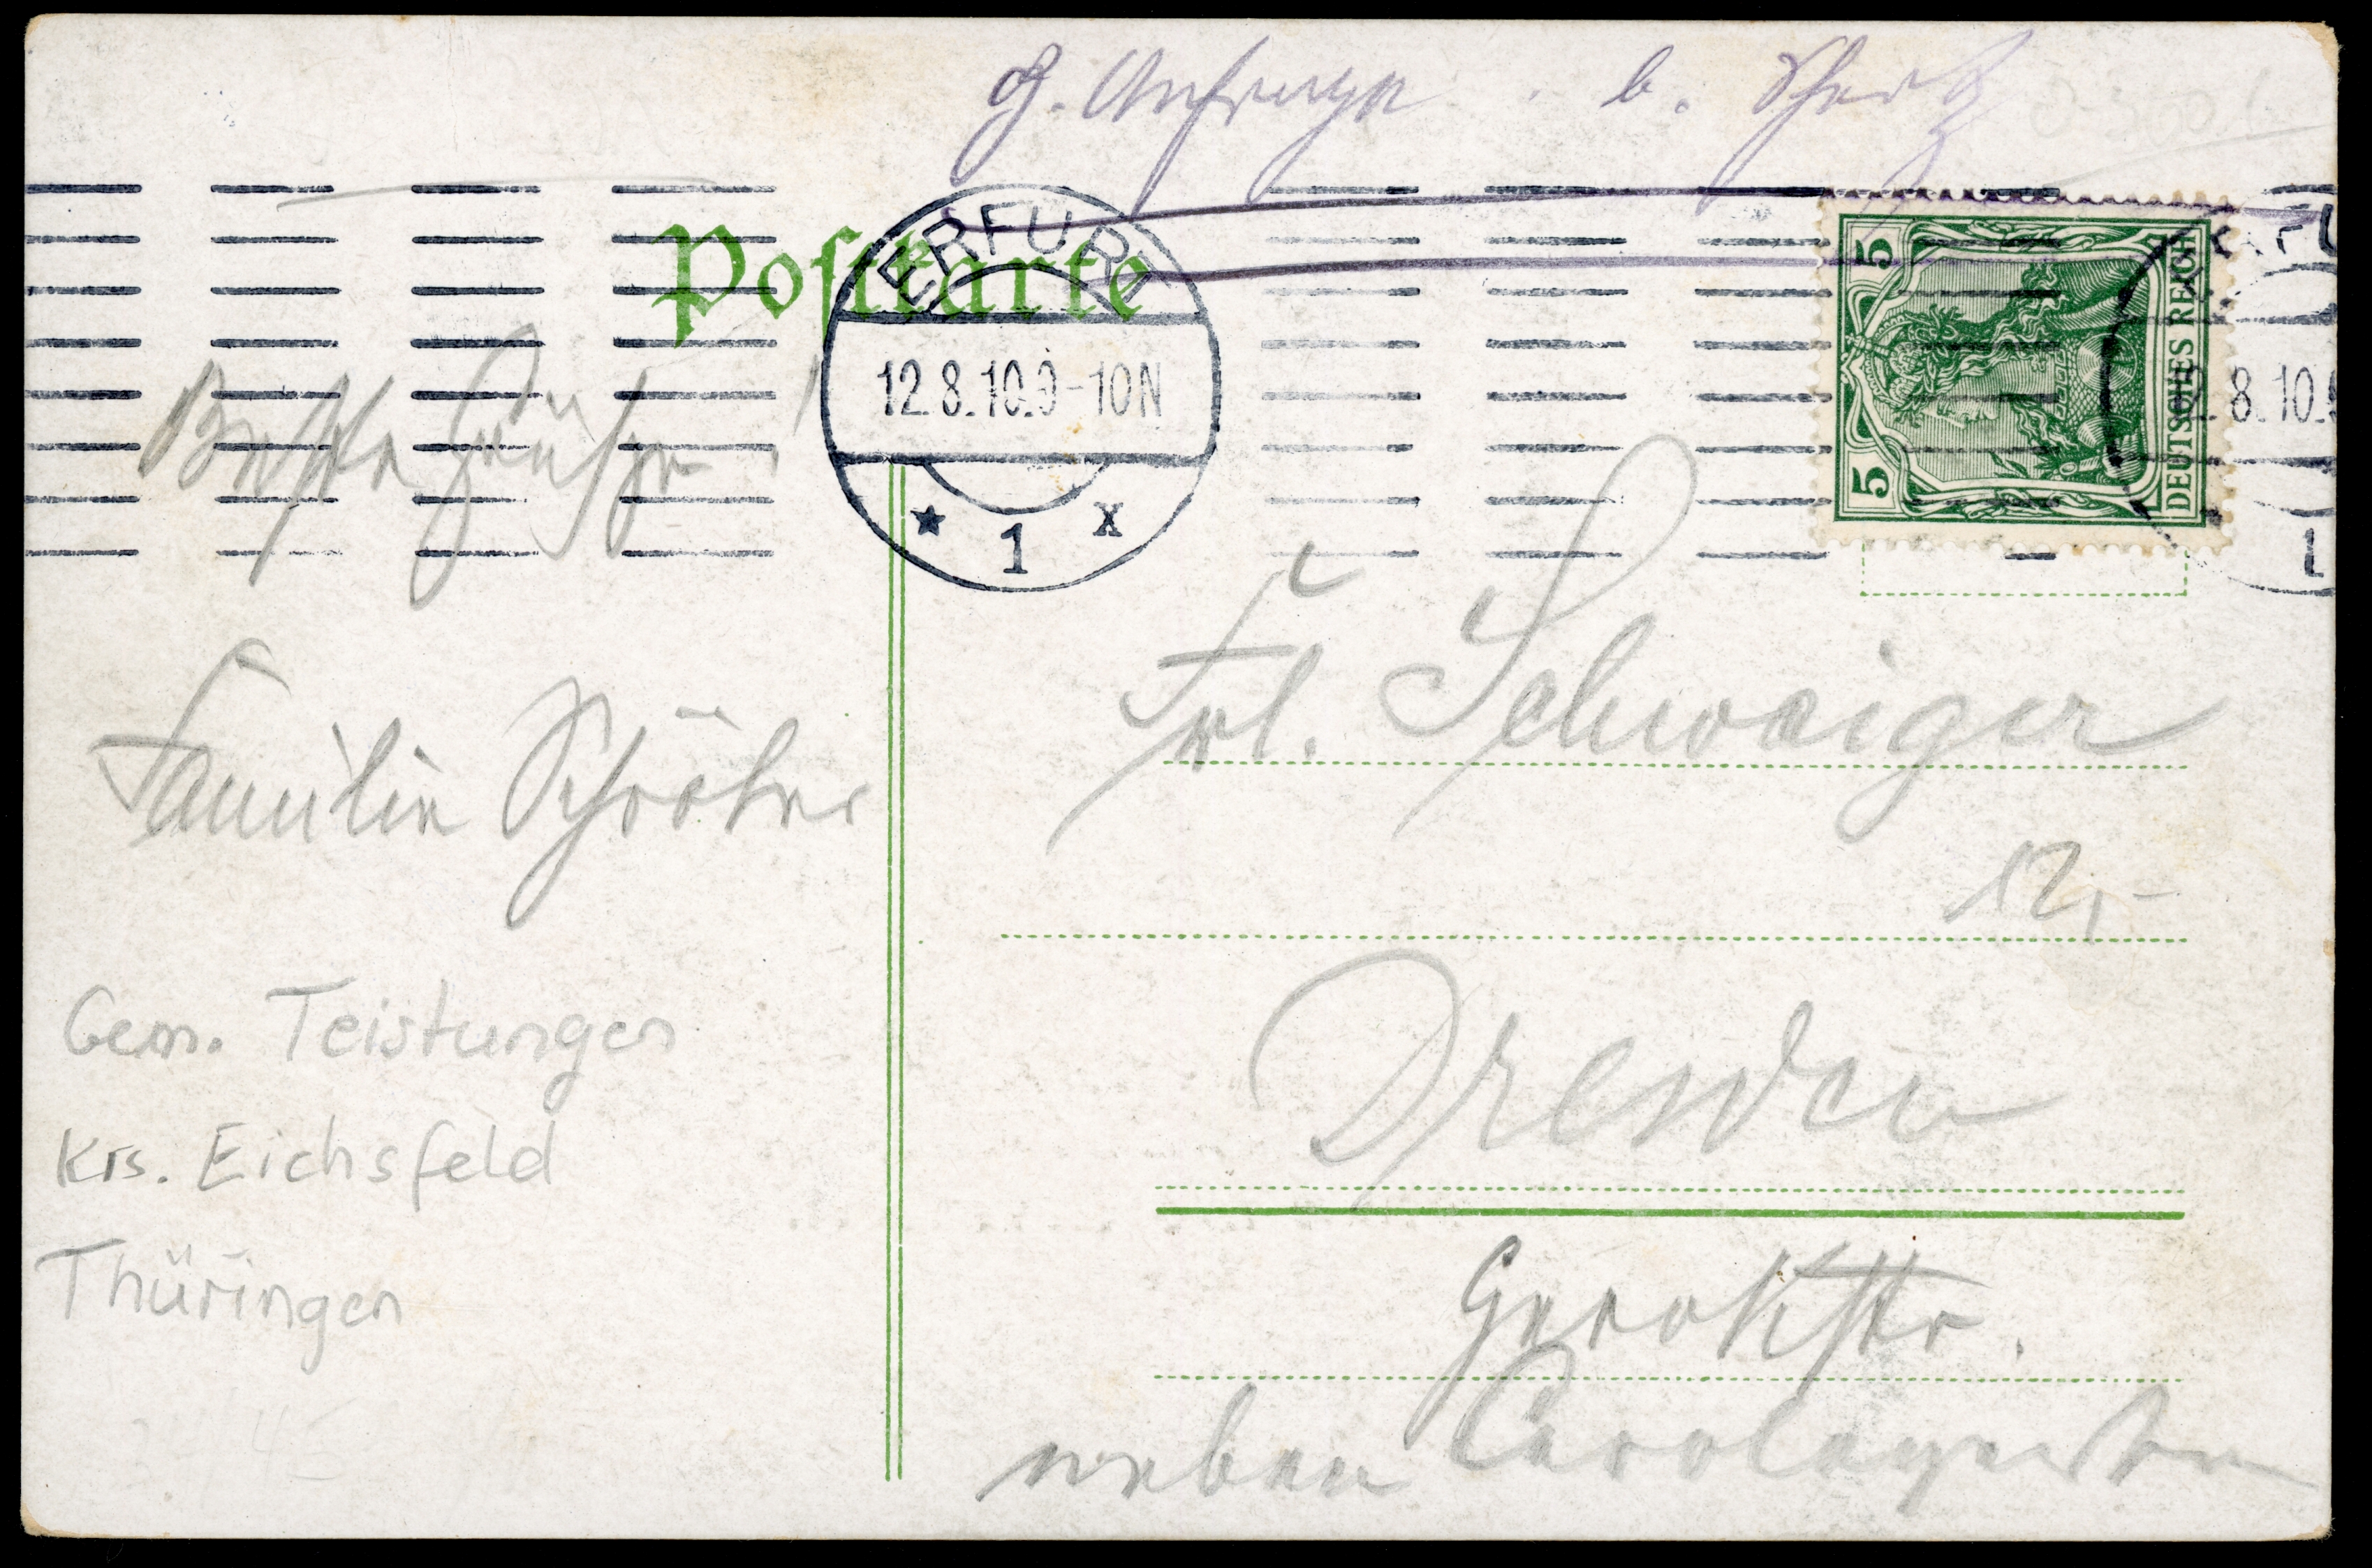 G. Anfrage b.
Postkarte
ERFURT
12.8.10.9-10N
* 1 x
5 5
DEUTSCHES REICH
8.10.
1
Beste Grüße!
Familie Schröter
Gem. Teistungen
Krs. Eichsfeld
Thüringen
Frl. Schwaiger
12,-
Dresden
Gerokstr.
neben Carolagarten